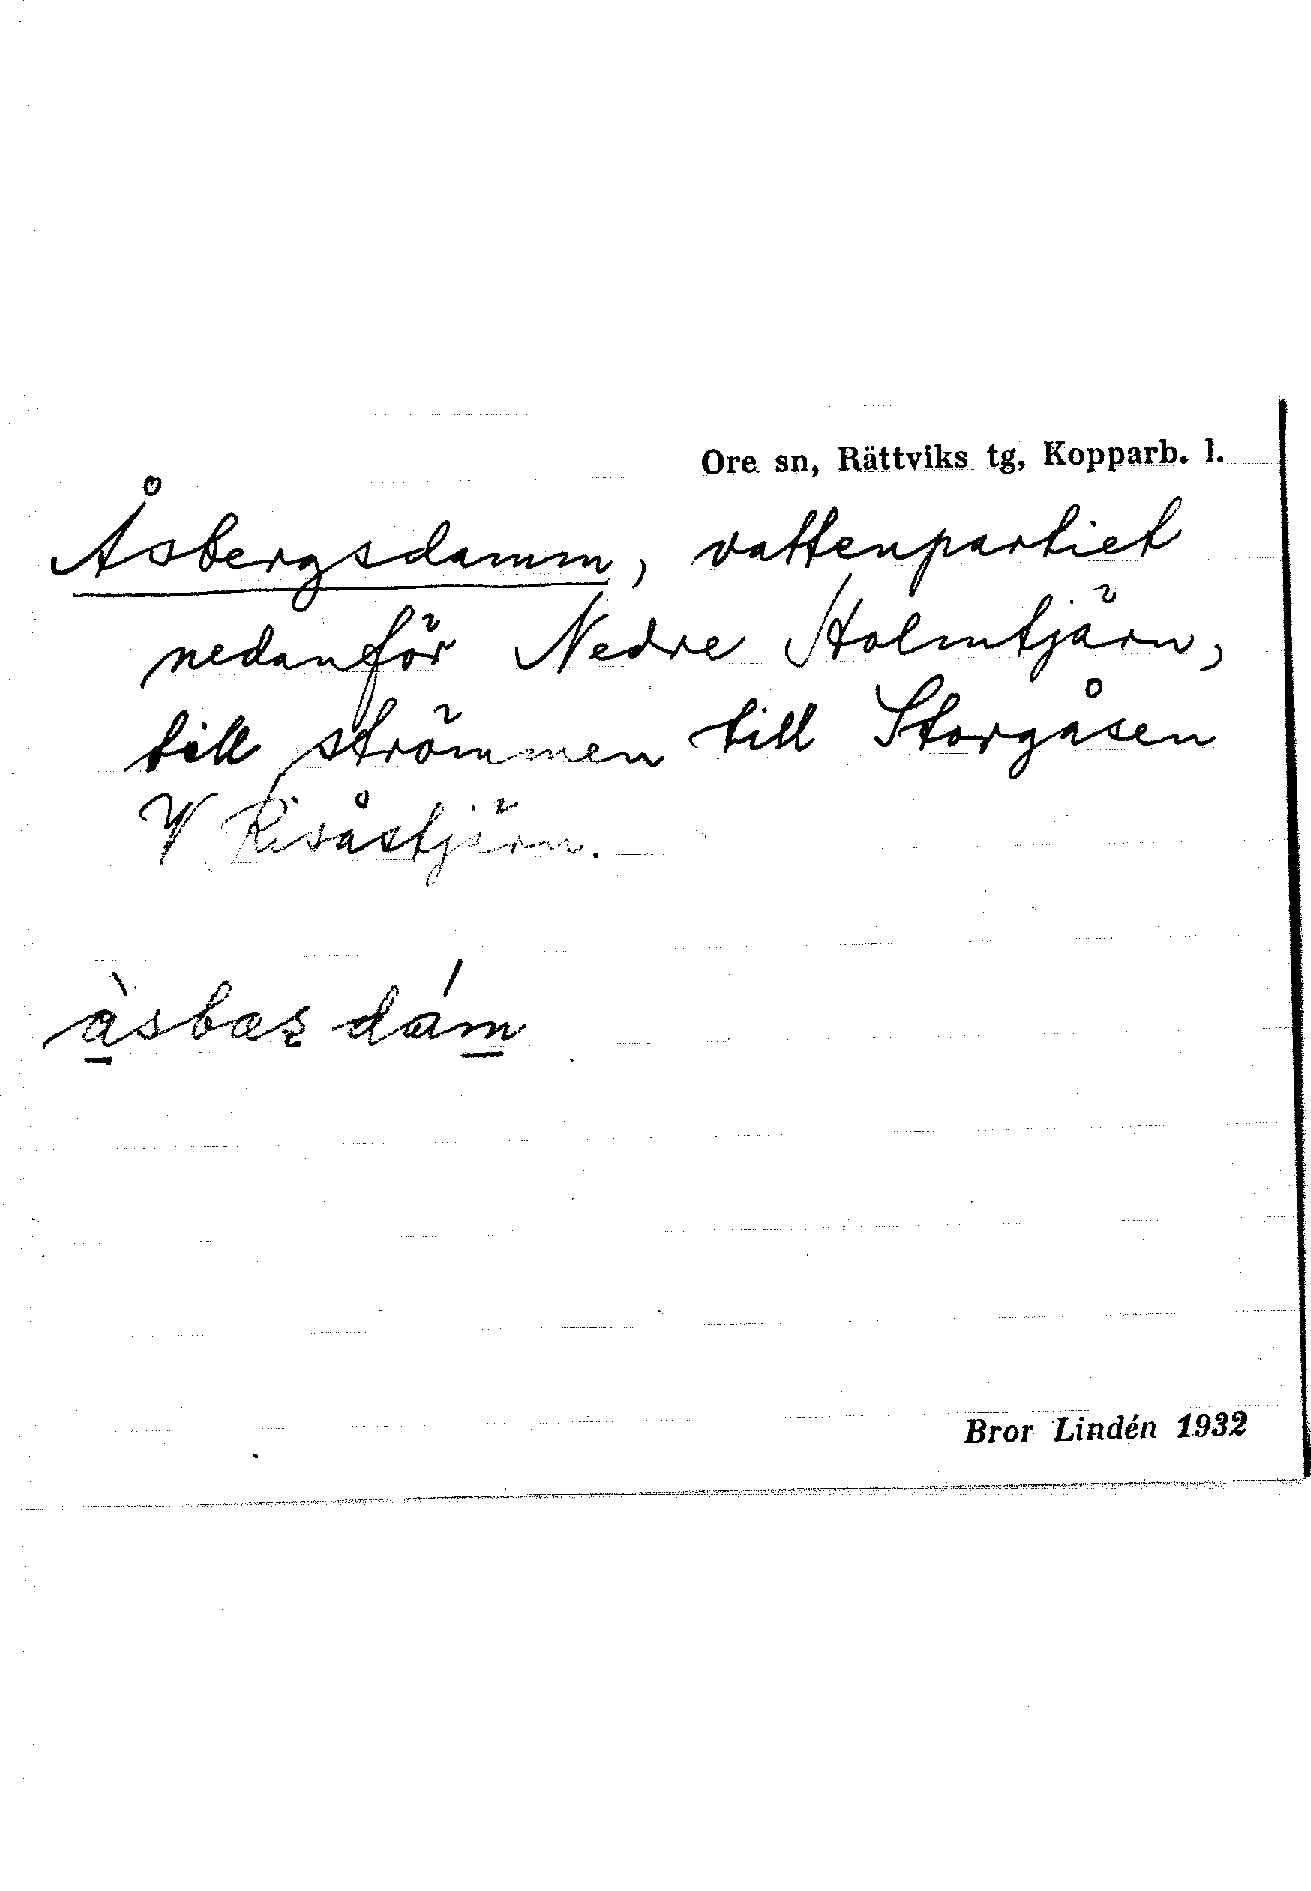 Ore sn, Rättviks tg, Kopparb. l.
Åsbergsdamm, vattenpartiet
nedanför Nedre Holmtjärn,
till strömmen till Storgåsen
V Risåstjärn.
åsbæʂ dám
Bror Lindén 1932